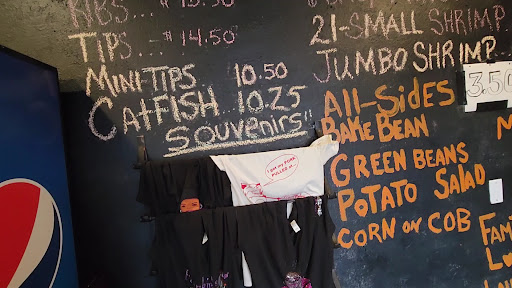 RIBS...
TIPS...$14.50
MINI-TIPS 10.50
CATFISH...10.25
SOUVENIRS"
I GOT MY PORK
PULLED AT
21-SMALL SHRIMP
JUMBO SHRIMP
ALL-SIDES 3.50
BAKE BEAN
GREEN BEANS
POTATO SALAD
CORN ON COB